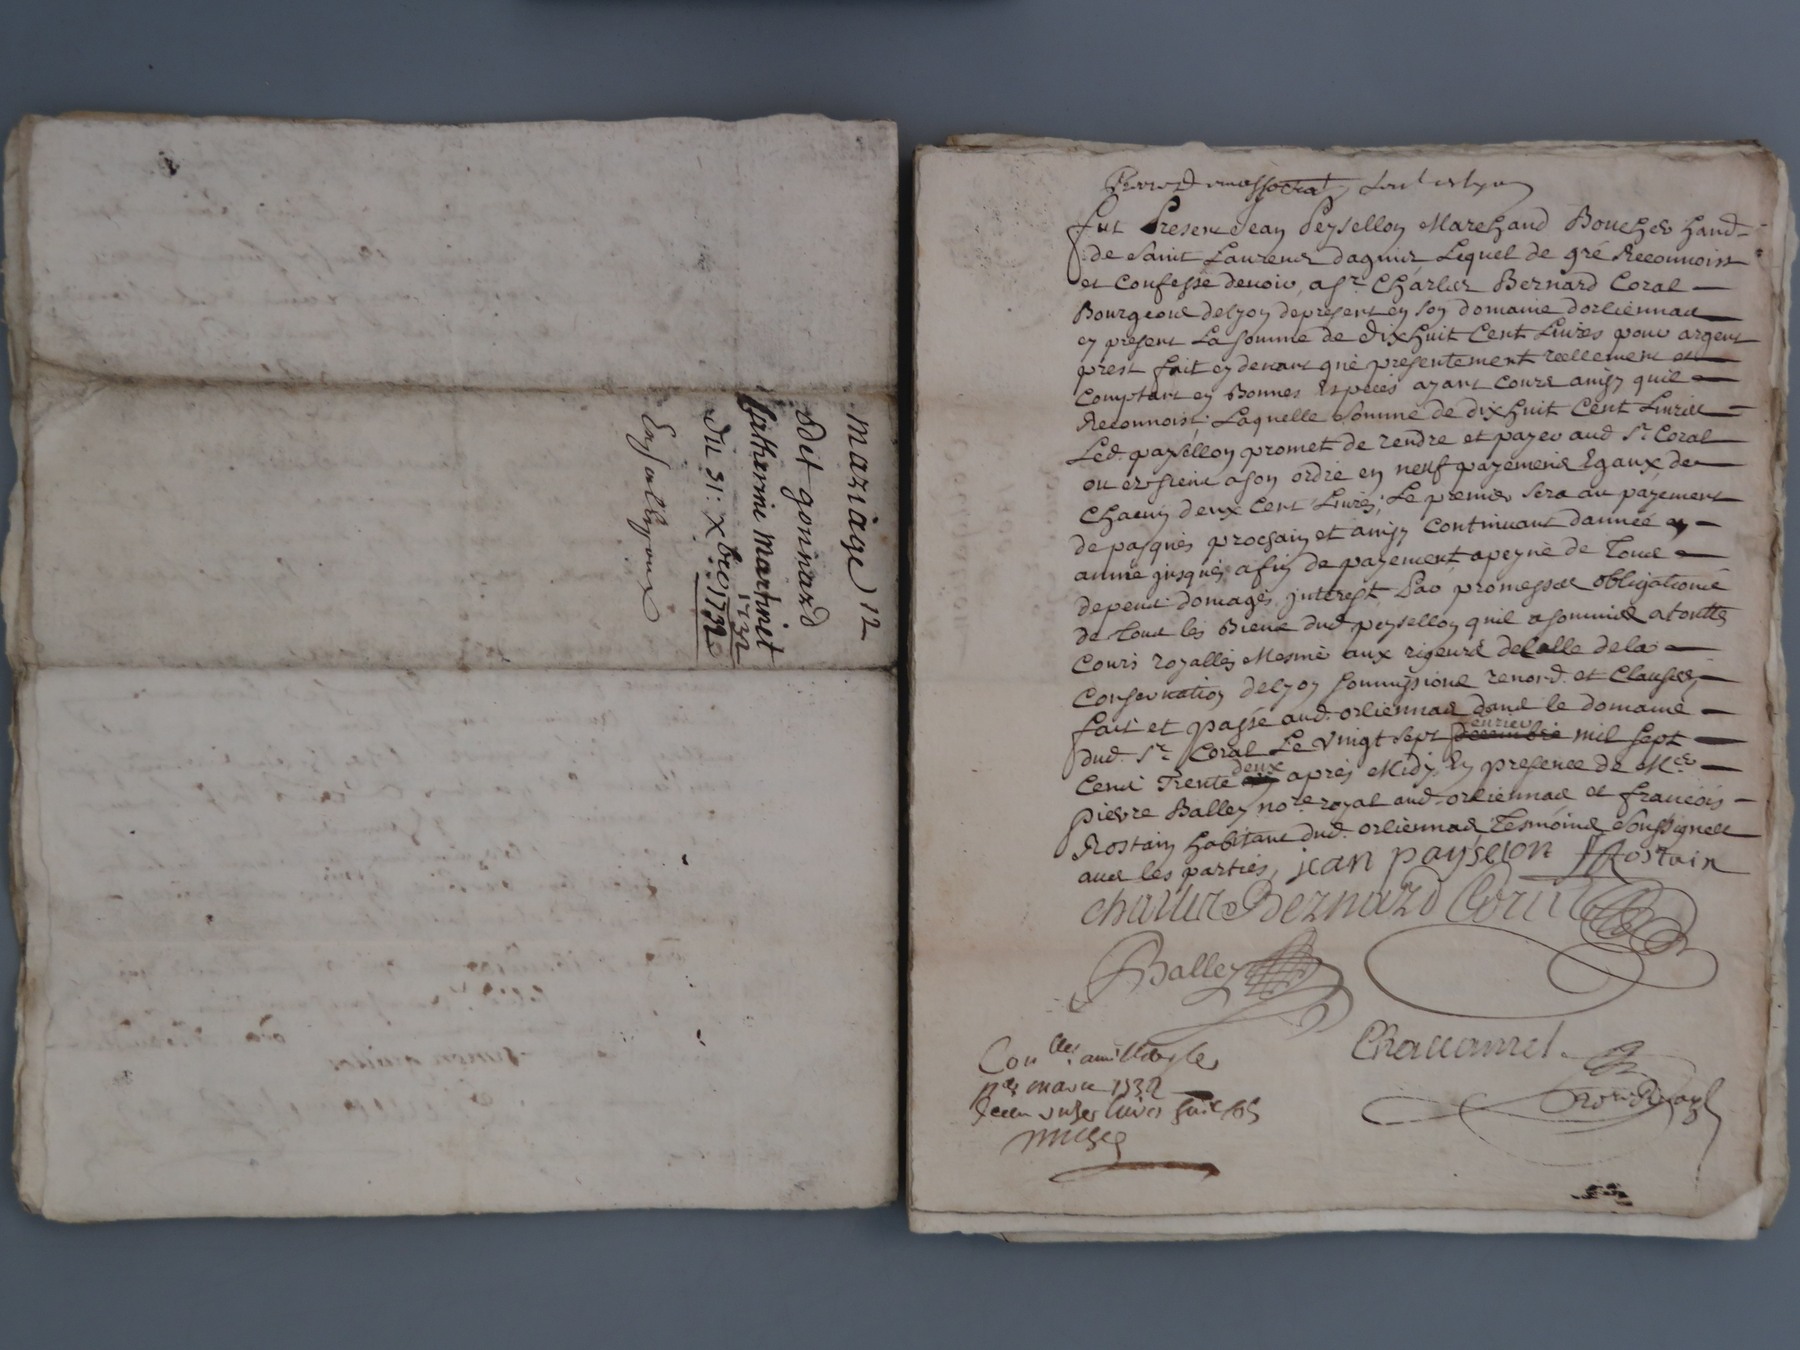 mariage 12
odit gonnard
Catherine martinet
1732
du 31: Xbre 1732
fut Presene Jean Peysellon Marchand Boucher hand
de Saint Laurens dagnis Lequel de gré Reconnoist
et Confesse devoir, a sr. Charles Bernard Coral
Bourgeois de lyon depresent en son domaine dorliennas
cy present La somme de dixhuit Cent Livres pour argent
prest fait cy devant que presentement reellement et
Comptant en Bonnes Especes ayant Cours ainsy quil
Reconnoist; Laquelle somme de dixhuit Cent Livres
Led. paysellon promet de rendre et payer aud. Sr. Coral
ou es siens a son ordre en neuf payemens Egaux de
Chacun deux Cent Livres; Le premier sera au payement
de pasques prochain et ainsy Continuant dannée en
année jusques a fin de payement apeyne de Tous
depens domages interest Par promesses obligations
de Tous les Biens dud. peysellon quil a soumis a toutte
Cours royalles Mesme aux rigeurs de Celle de la
Conservation de lyon soummissions renond. et Clauses
fait et passé aud. orliennas dans le domaine
dud. Sr. Coral Le vingt sept decembre mil sept
Cens Trente deux apres Midy En presence de Me
pierre Balley nore. royal aud. orliennas et francois
Rostain habitant dud. orliennas Tesmoins Soussignes
avec les parties, jean payselon Rostain
charles Bernard Coral
Balley
mars 1732